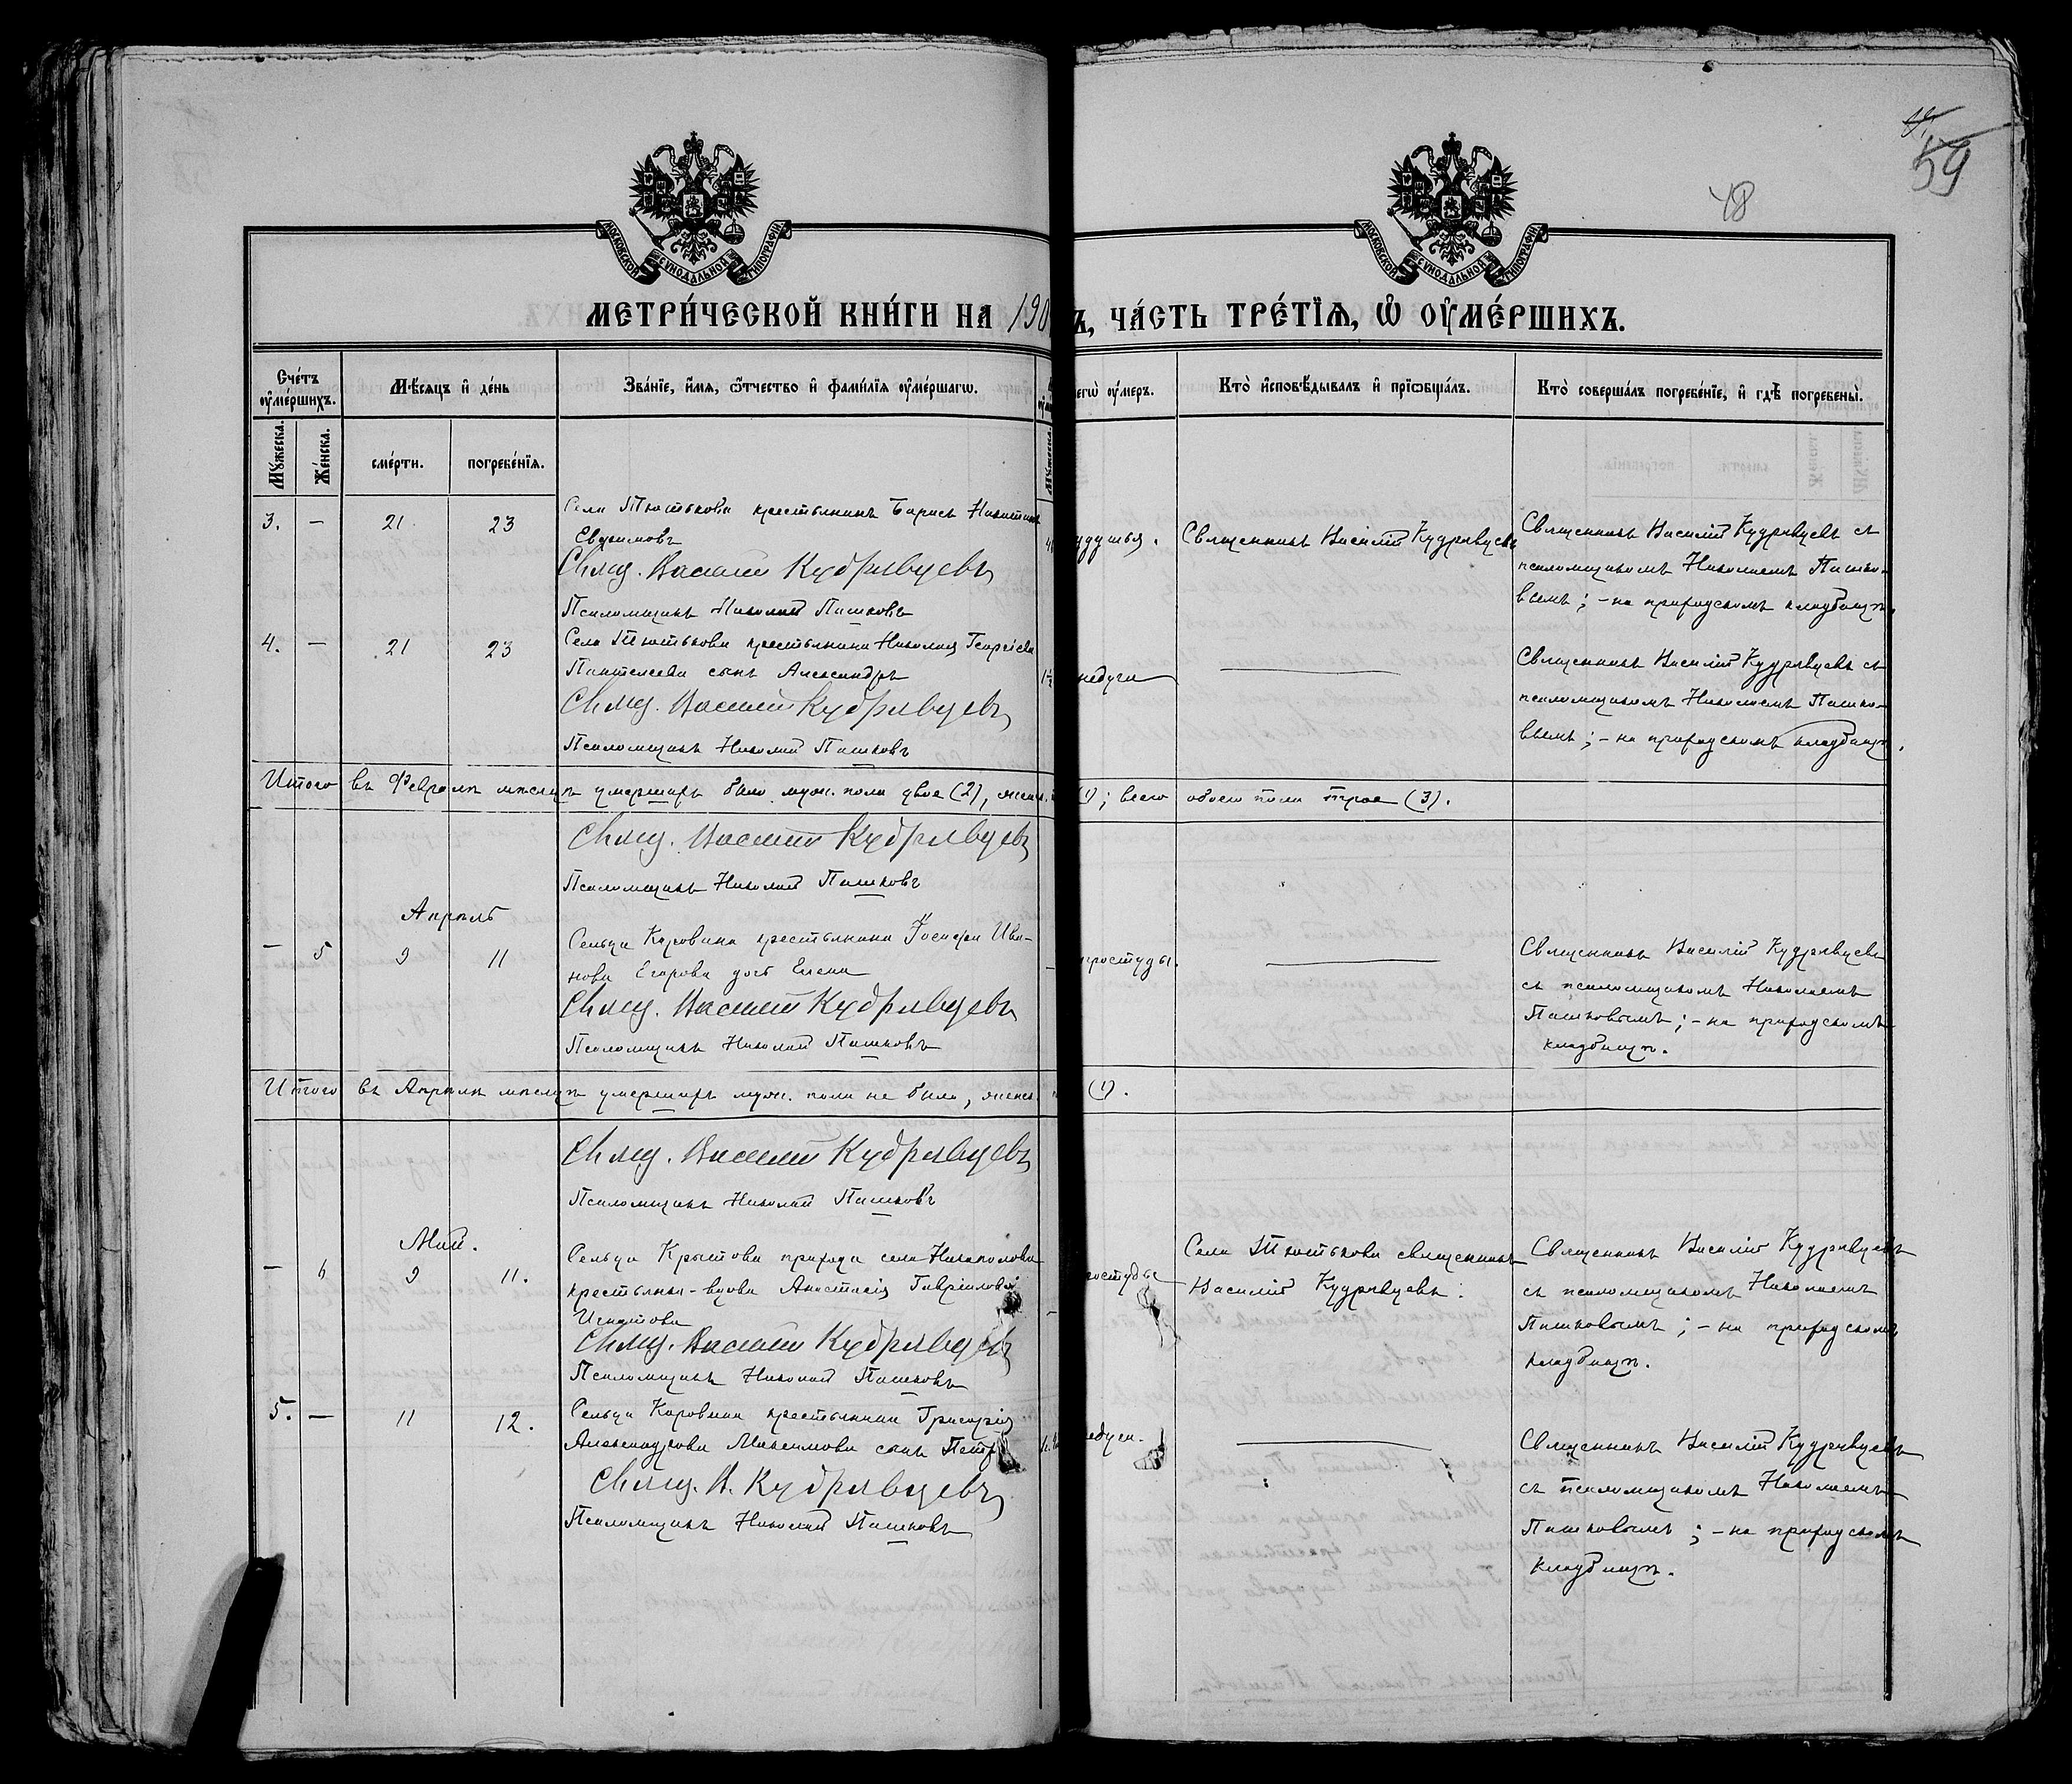 59
48
МОСКОВСКОЙ СѴНОДАЛЬНОЙ ТИПОГРАФІИ
МОСКОВСКОЙ СѴНОДАЛЬНОЙ ТИПОГРАФІИ
МЕТРИ́ЧЕСКОЙ КНИ́ГИ НА 190
Ъ, ЧА́СТЬ ТРЕ́ТЇѦ, Ѿ ОУ҆МЕ́РШИХЪ.
Сче́тъ оу҆ме́ршихъ.
Мѣ́сѧцъ и҆ де́нь
Зва́нїе, и҆́мѧ, ѻ҆́тчество и҆ фами́лїѧ оу҆ме́ршагѡ.
егѡ̀ оу҆́меръ.
Кто̀ и҆сповѣ́дывалъ и҆ прїѡбща́лъ.
Кто̀ соверша́лъ погребе́нїе, и҆ гдѣ̀ погребены̀.
Мꙋ́жеска.
Же́нска.
сме́рти.
погребе́нїѧ.
Мꙋ́жеска.
3. — 21 23
Села Тютькова крестьянинъ Борисъ Никитинъ
Евдокимовъ
Свящ. Василий Кудрявцевъ
Псаломщикъ Николай Пашковъ
удушья.
Священникъ Василій Кудрявцевъ
Священникъ Василій Кудрявцевъ съ
псаломщикомъ Николаемъ Пашко-
вымъ; – на приходскомъ кладбищѣ.
4. — 21 23
Села Тютькова крестьянина Николая Георгіева
Пантелеева сынъ Александръ
Свящ. Василий Кудрявцевъ
Псаломщикъ Николай Пашковъ
1½
недуга
Священникъ Василій Кудрявцевъ съ
псаломщикомъ Николаемъ Пашко-
вымъ; – на приходскомъ кладбищѣ.
Итого въ Февралѣ мѣсяцѣ умершихъ было муж. пола двое (2), женск.
(1); всего обоего пола трое (3).
Свящ. Василий Кудрявцевъ
Псаломщикъ Николай Пашковъ
Апрѣль
— 5 9 11
Сельца Коровина крестьянина Іосифа Ива-
нова Егорова дочь Елена
Свящ. Василий Кудрявцевъ
Псаломщикъ Николай Пашковъ
простуды.
Священникъ Василій Кудрявцевъ
съ псаломщикомъ Николаемъ
Пашковымъ; – на приходскомъ
кладбищѣ.
Итого въ Апрѣлѣ мѣсяцѣ умершихъ муж. пола не было, женск.
(1).
Свящ. Василий Кудрявцевъ
Псаломщикъ Николай Пашковъ
Май.
— 6 9 11.
Сельца Крытова прихода села
крестьянка-вдова Анастасія Гавріилова
Игнатова
Свящ. Василий Кудрявцевъ
Псаломщикъ Николай Пашковъ
ростуды
Села Тютькова священникъ
Василій Кудрявцевъ.
Священникъ Василій Кудрявцевъ
съ псаломщикомъ Николаемъ
Пашковымъ; – на приходскомъ
кладбищѣ.
5. — 11 12.
Сельца Коровина крестьянина Григорія
Александрова Максимова сынъ Петръ
Свящ. В. Кудрявцевъ
Псаломщикъ Николай Пашковъ
едуга.
Священникъ Василій Кудрявцевъ
съ псаломщикомъ Николаемъ
Пашковымъ; – на приходскомъ
кладбищѣ.